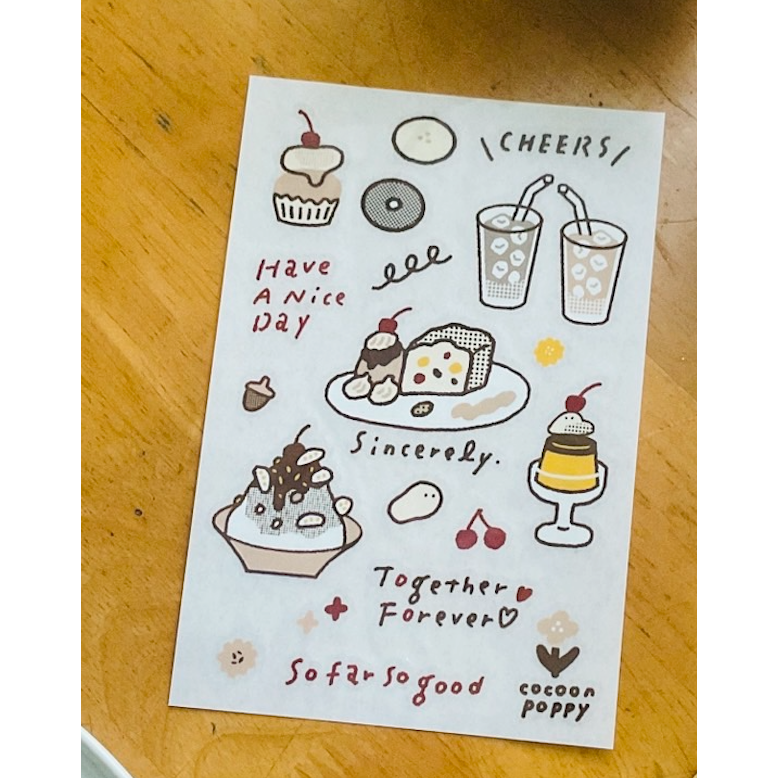 \CHEERS/
Have
A Nice
Day
Sincerely.
Together
Forever
So far so good
cocoon
poppy